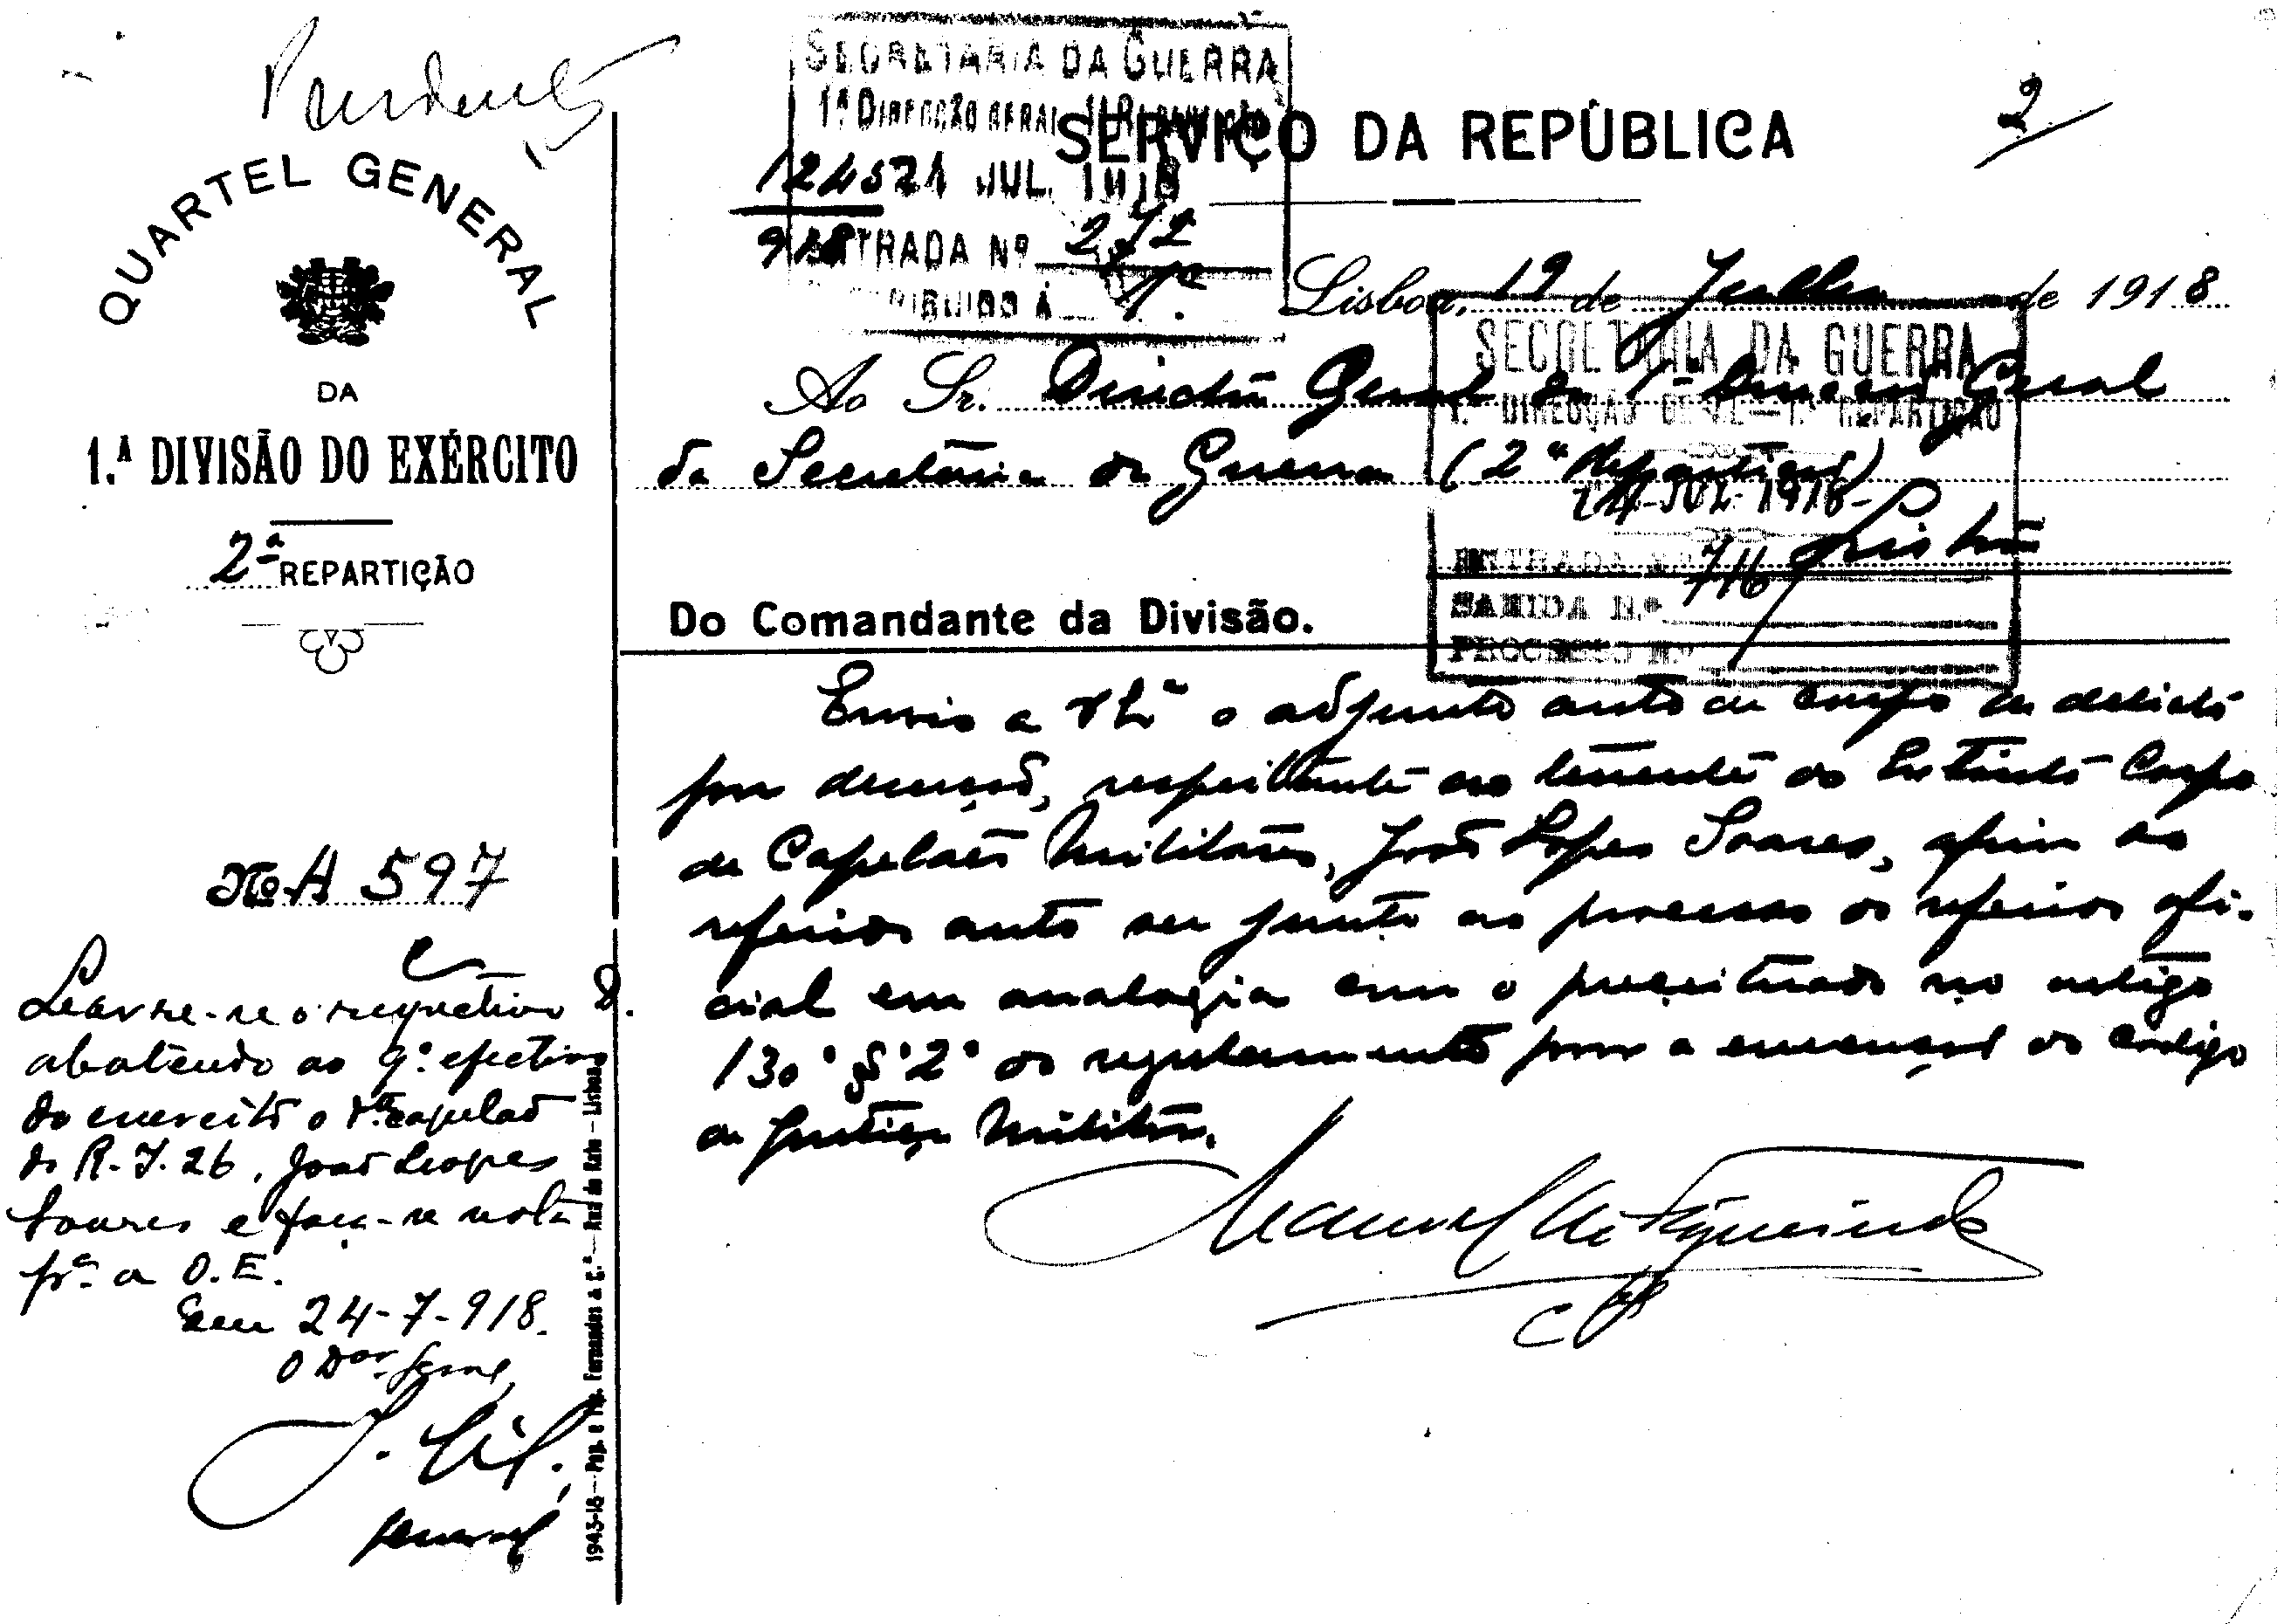 Pendente
QUARTEL GENERAL
DA
1.ª DIVISÃO DO EXÉRCITO
2ª REPARTIÇÃO
Nº A 597
SECRETARIA DA GUERRA
1ª DIRECÇÃO GERAL 1ª REPARTIÇÃO
21 JUL. 1918
918
ENTRADA Nº 272
SERVIÇO DA REPÚBLICA
2
Lisboa, 19 de Julho de 1918
Ao Sr. Director Geral da 1ª Direcção Geral
da Secretaria da Guerra (2ª Repartição)
SECRETARIA DA GUERRA
1.ª DIRECÇÃO GERAL — 1.ª REPARTIÇÃO
24 JUL 1918
ENTRADA Nº 716
SAHIDA N.º
PROCESSO N.º
Do Comandante da Divisão.
Envio a V. Exª o adjunto auto de corpo de delicto
por deserção, respeitante ao tenente do Extinto Corpo
de Capelães Militares, João Lopes Soares, afim do
referido auto ser junto ao processo do referido ofi-
cial em analogia com o preceituado no artigo
130º § 2º do regulamento para a execução do codigo
de Justiça Militar.
Manuel de Figueiredo
Lavre-se o respectivo D.
abatendo ao q.º efectivo
do exercito o capelão
do R. I. 26, João Lopes
Soares e faça-se nota
prª a O. E.
Em 24-7-918.
O Dor Geral,
general
1943-18 — Pap. e Tip. Fernandes & C.ª — Rua do Rato — Lisboa